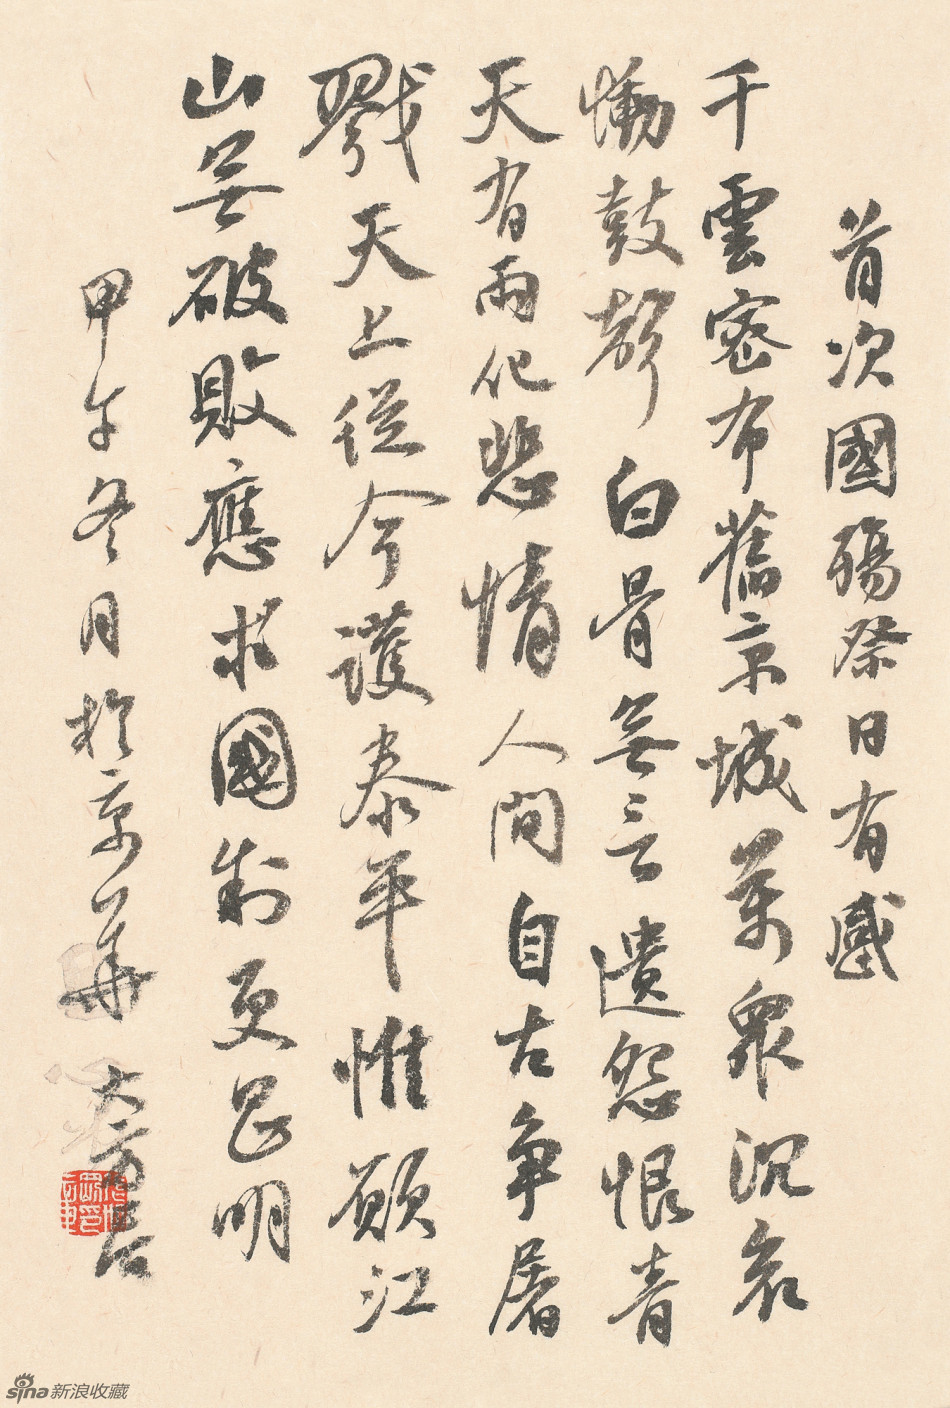 首次國殤祭日有感
千雲密布舊京城萬眾沉哀
慟鼓聲白骨無言遺怨恨青
天有雨化悲情人間自古爭屠
戮天上從今護泰平惟願江
山無破敗應求國制更昌明
甲午冬月於京華 大方書
sina新浪收藏